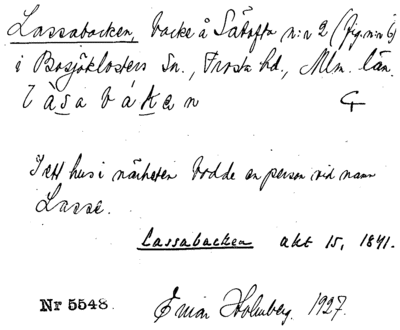 Lassabacken, backe å Sätofta n:r 2 (fig. n:r 6)
i Bosjöklosters Sn., Frosta hd., Mlm. län.
làsabákan
I ett hus i närheten bodde en person vid namn
Lasse.
Lassabacken akt 15, 1841.
Nr 5548. Einar Holmberg. 1927.